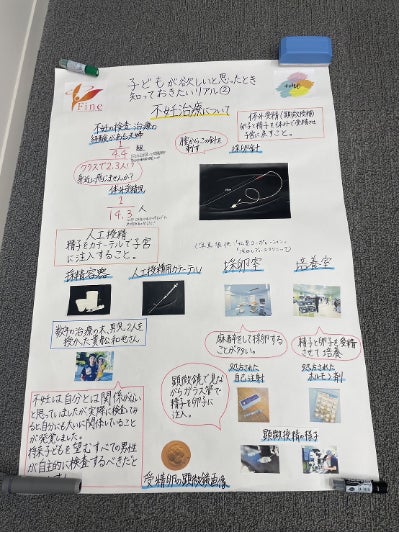 Fine
子どもが欲しいと思ったとき
知っておきたいリアル②
不妊治療について
不妊の検査・治療の
経験がある夫婦
1
4.4
組
クラスで2,3人!
身近に感じませんか?
体外受精児
1
14.3
人
人工授精
精子をカテーテルで子宮
に注入すること。
体外受精(顕微授精)
卵子と精子を体外で受精させ
子宮に戻すこと。
腟からこの針を
刺す
採卵針
採精容器
人工授精用カテーテル
採卵室
培養室
数年の治療の末、男児2人を
授かった
麻酔をして採卵する
ことが多い。
精子と卵子を受精
させて培養
顕微鏡で見な
がらガラス管で
精子を卵子に
注入。
処方された
自己注射
処方された
ホルモン剤
顕微授精の様子
不妊は自分とは関係がない
と思っていましたが実際に検査してみ
ると自分にも大いに関係していること
が発覚しました。
将来子どもを望むすべての男性
が自主的に検査するべきだと
受精卵の顕微鏡画像